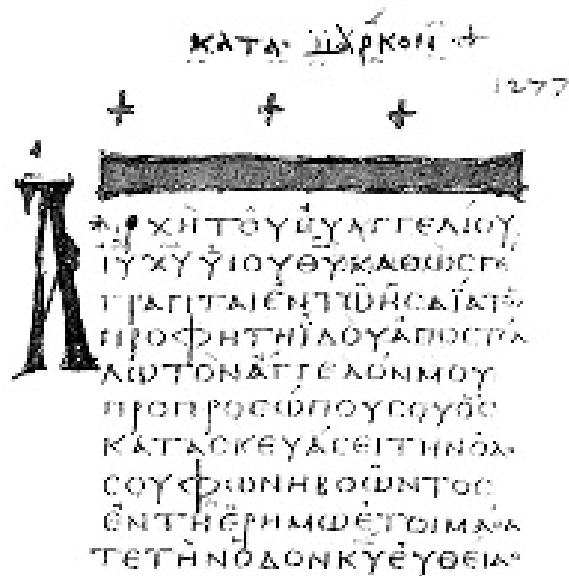 ΚΑΤΑ ΜΑΡΚΟΝ
1277
ΑΡΧΗ ΤΟΥ ΕΥΑΓΓΕΛΙΟΥ
ΙΥ ΧΥ ΥΙΟΥ ΘΥ ΚΑΘΩΣ ΓΕ
ΓΡΑΠΤΑΙ ΕΝ ΤΩ ΗΣΑΪΑ ΤΩ
ΠΡΟΦΗΤΗ ΙΔΟΥ ΑΠΟΣΤΕ
ΛΩ ΤΟΝ ΑΓΓΕΛΟΝ ΜΟΥ
ΠΡΟ ΠΡΟΣΩΠΟΥ ΣΟΥ ΟΣ
ΚΑΤΑΣΚΕΥΑΣΕΙ ΤΗΝ ΟΔΟ
ΣΟΥ ΦΩΝΗ ΒΟΩΝΤΟΣ
ΕΝ ΤΗ ΕΡΗΜΩ ΕΤΟΙΜΑΣΑ
ΤΕ ΤΗΝ ΟΔΟΝ ΚΥ ΕΥΘΕΙΑΣ